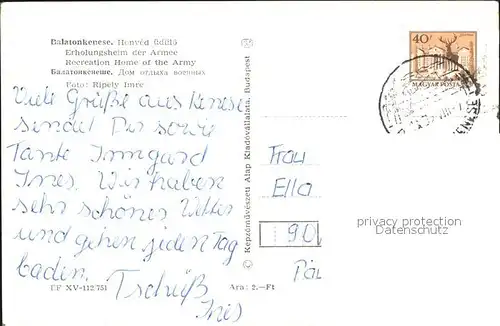 Balatonkenese. Honvéd üdülő
Erholungsheim der Armee
Recreation Home of the Army
Балатонкенеше. Дом отдыха военных
Foto: Ripely Imre
Viele Grüße aus Kenese
sendet Dir sowie
Tante Irmgard
Ines. Wir haben
sehr schönes Wetter
und gehen jeden Tag
baden.
Tschüß
Ines
EF XV-112/751
Ara: 2.—Ft
© Képzőművészeti Alap Kiadóvállalata, Budapest
40f
MAGYAR POSTA
Frau
Ella
90
privacy protection
Datenschutz